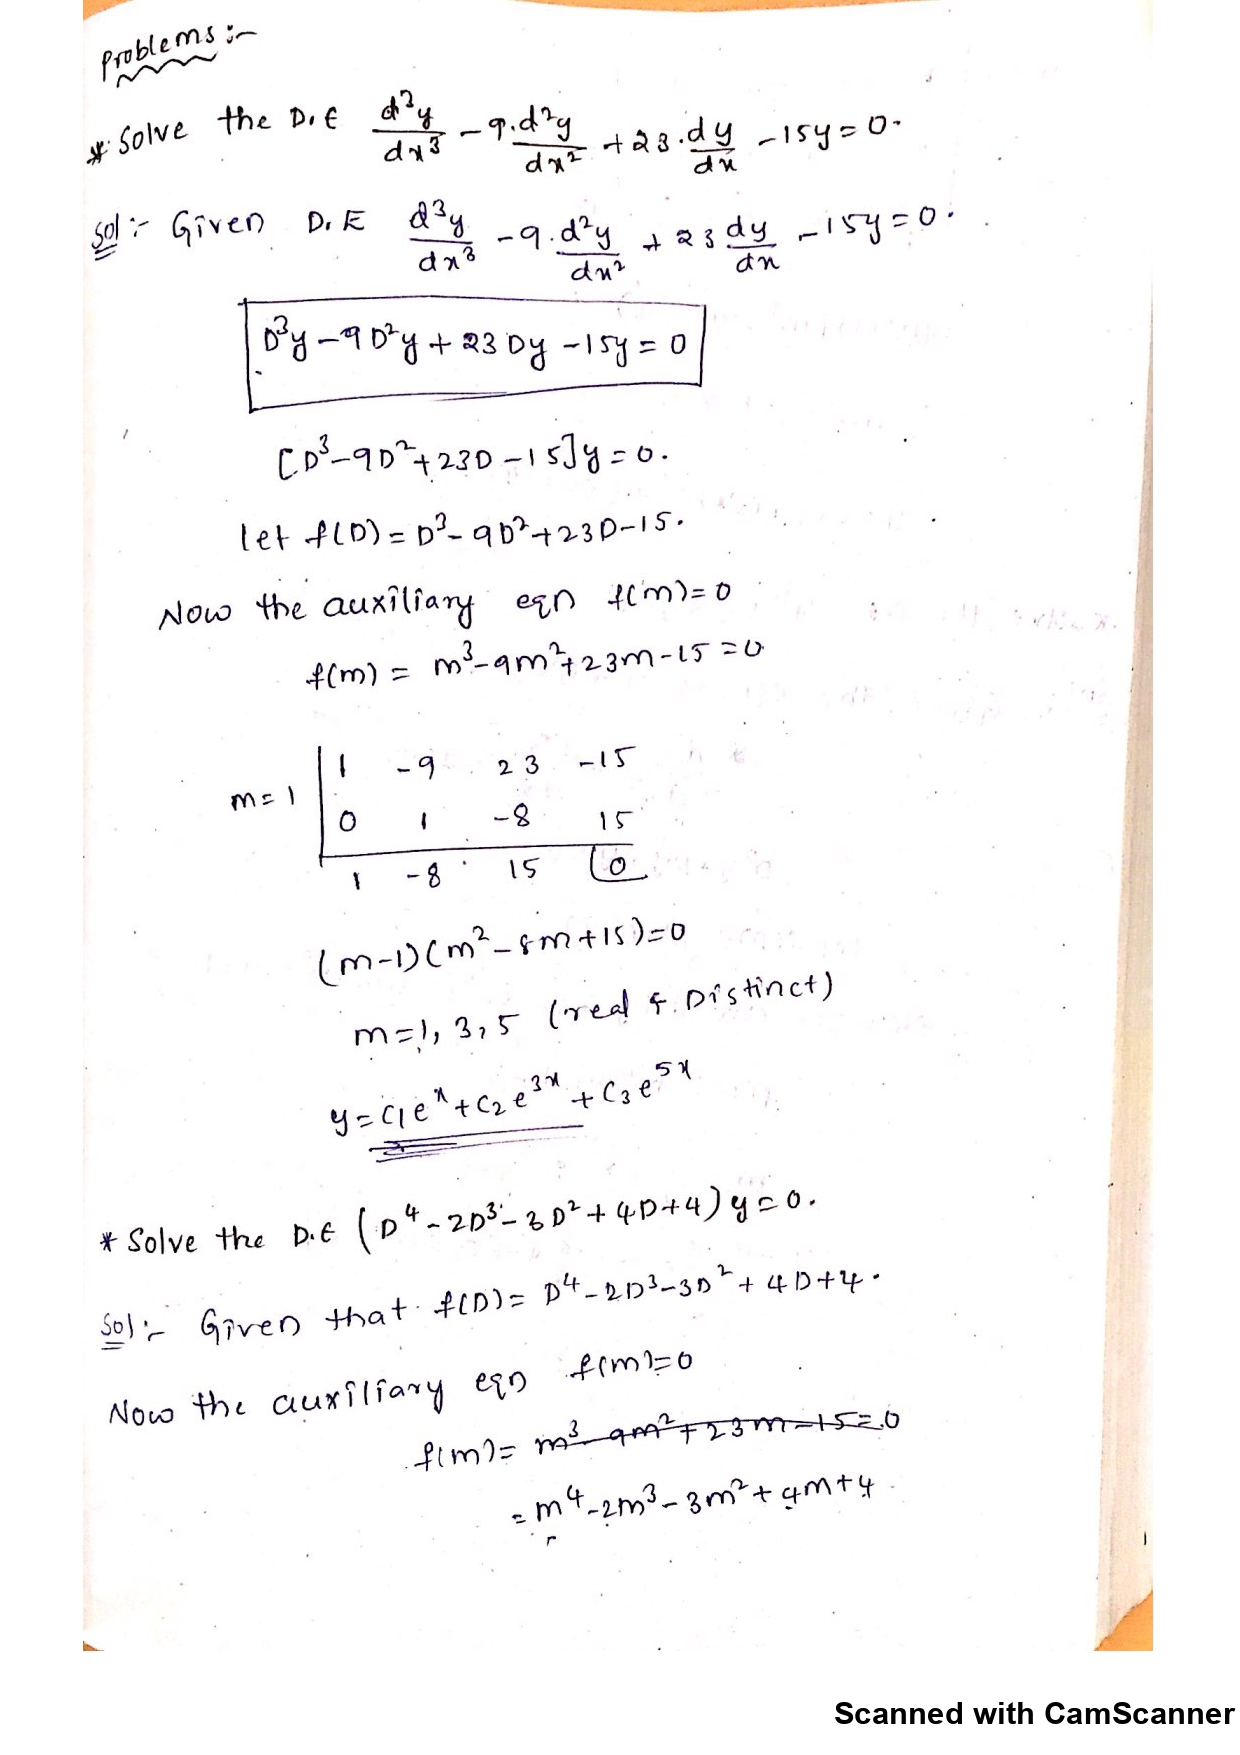 Problems :-
* Solve the D.E d³y/dx³ - 9.d²y/dx² + 23.dy/dx - 15y = 0.
Sol :- Given D.E d³y/dx³ - 9.d²y/dx² + 23 dy/dx - 15y = 0.
D³y - 9D²y + 23Dy - 15y = 0
[D³-9D²+23D-15]y = 0.
let f(D) = D³-9D²+23D-15.
Now the auxiliary eqn f(m)=0
f(m) = m³-9m²+23m-15 = 0
m=1 | 1 -9 23 -15
0 1 -8 15
1 -8 15 0
(m-1)(m²-8m+15)=0
m=1, 3, 5 (real & Distinct)
y = c₁eˣ+c₂e³ˣ+c₃e⁵ˣ
* Solve the D.E (D⁴-2D³-3D²+4D+4)y=0.
Sol :- Given that f(D) = D⁴-2D³-3D²+4D+4.
Now the auxiliary eqn f(m)=0
f(m) = m³-9m²+23m-15=0
= m⁴-2m³-3m²+4m+4
Scanned with CamScanner